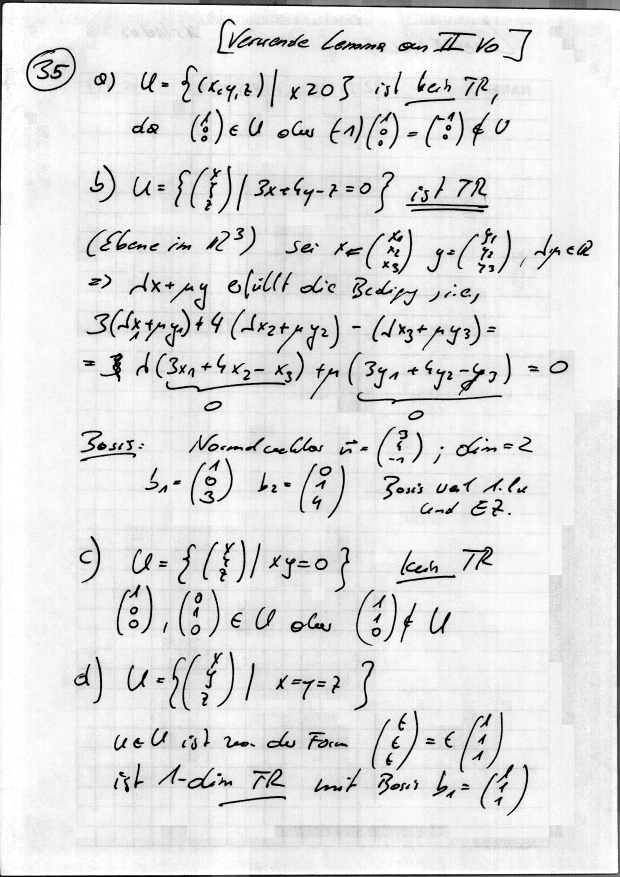 [Verwende Lemma aus II Vo]
35
a) U = {(x,y,z) | x ≥ 0} ist kein TR,
da (1 0 0) ∈ U aber (-1)(1 0 0) = (-1 0 0) ∉ U
b) U = {(x y z) | 3x+4y-z=0} ist TR
(Ebene im ℝ³) sei x = (x₁ x₂ x₃) y = (y₁ y₂ y₃), λ,μ ∈ ℝ
=> λx+μy erfüllt die Bedigg, i.e,
3(λx₁+μy₁)+4(λx₂+μy₂) - (λx₃+μy₃) =
= λ(3x₁+4x₂-x₃) + μ(3y₁+4y₂-y₃) = 0
0 0
Basis: Normalvektor n⃗ = (3 4 -1) ; dim=2
b₁ = (1 0 3) b₂ = (0 1 4) Basis weil l.u
und EZ.
c) U = {(x y z) | xy=0} kein TR
(1 0 0), (0 1 0) ∈ U aber (1 1 0) ∉ U
d) U = {(x y z) | x=y=z}
u ∈ U ist von der Form (t t t) = t (1 1 1)
ist 1-dim TR mit Basis b₁ = (1 1 1)